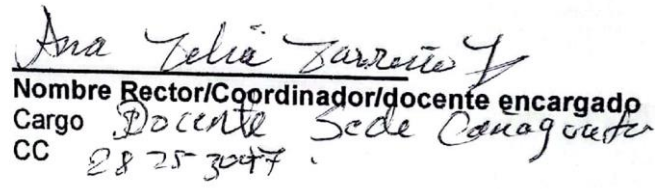 Ana Delia Barreto
Nombre Rector/Coordinador/docente encargado
Cargo Docente Sede
CC 28253047.